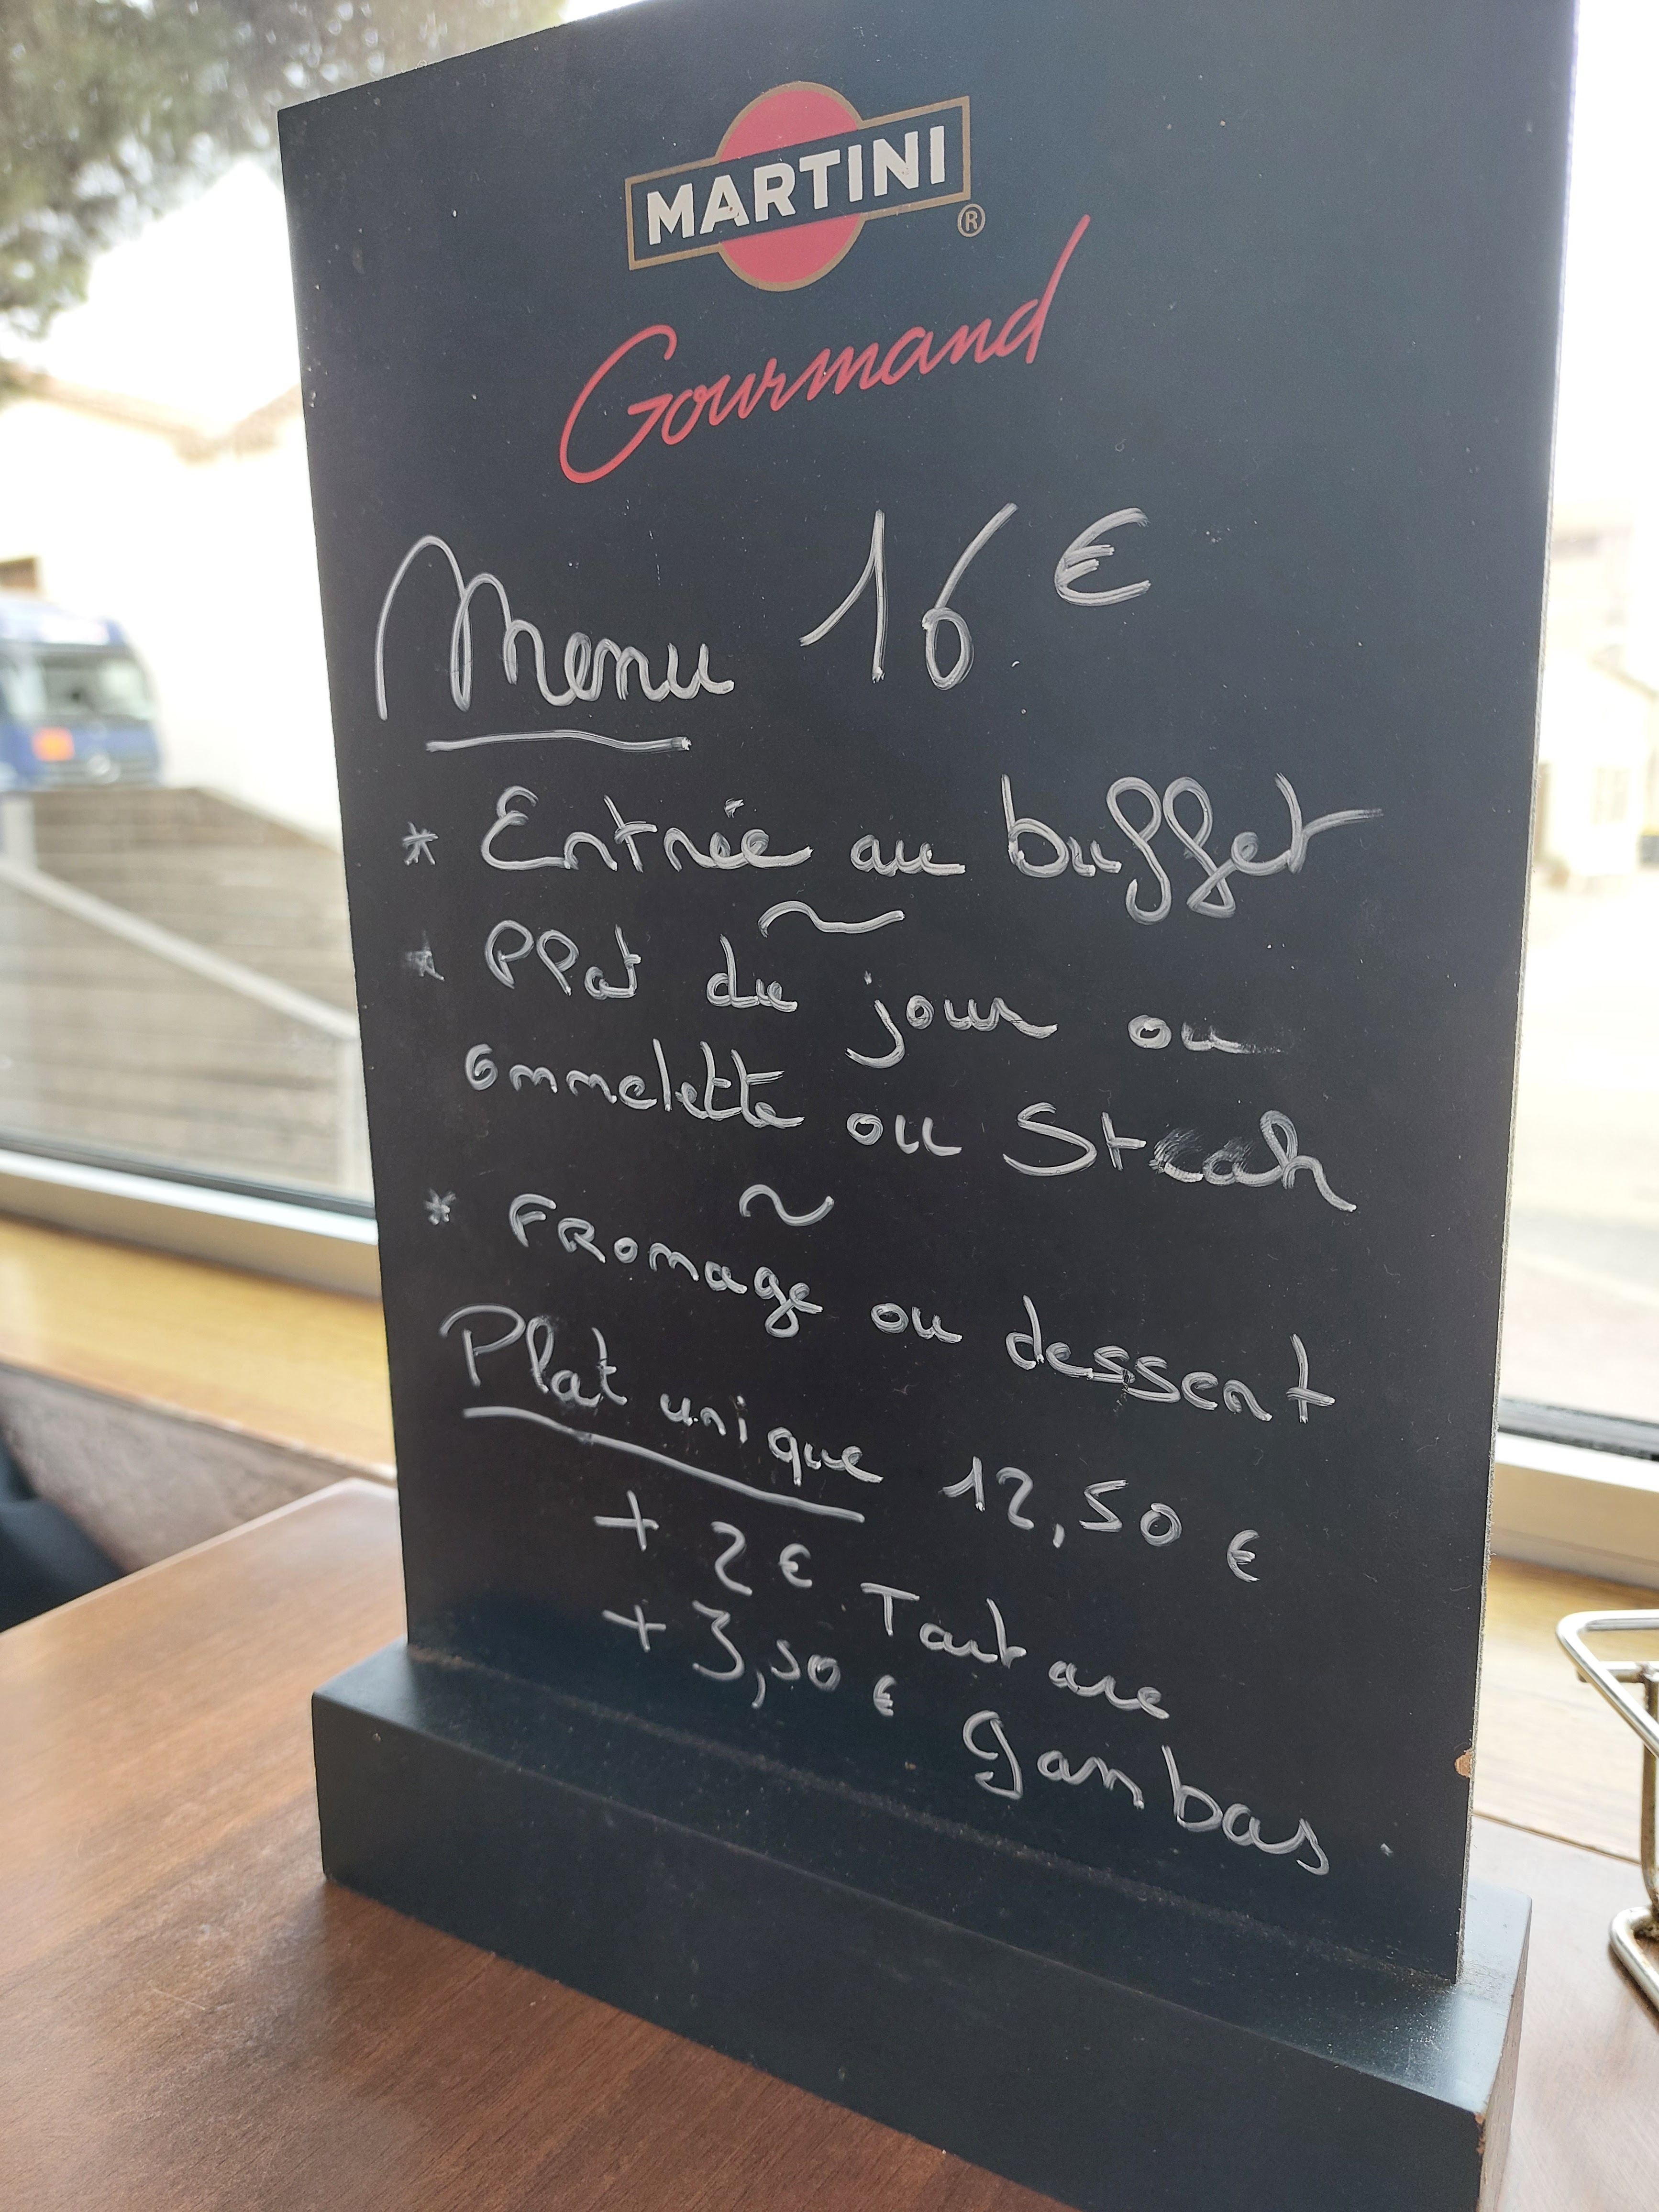 MARTINI
®
Gourmand
Menu 16 €
* Entrée au buffet
~
* Plat du jour ou
ommelette ou Steak
~
* FRomage ou dessert
Plat unique 12,50 €
+ 2 € Tartare
+ 3,50 € gambas